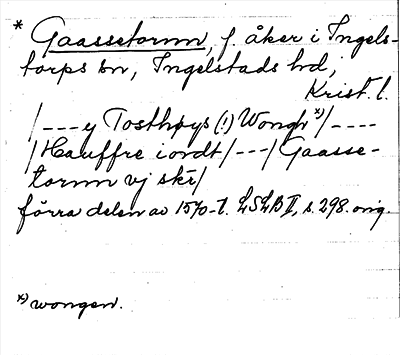 * Gaassetornn, f. åker i Ingels-
torps sn, Ingelstads hd,
Krist. l.
/---y Tosthøys (!) Wongh x)/----
/Hauffre iordt/---/Gaasse-
tornn vj skr/
förra delen av 1570-t. LSLB II, s. 298. orig.
x) wongen.